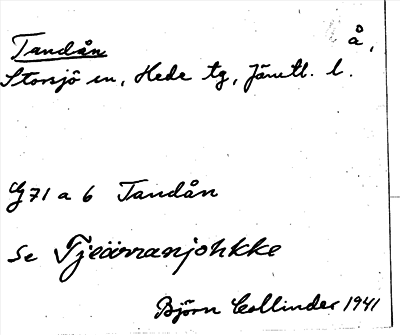 Tandån å,
Storsjö sn, Hede tg, Jämtl. l.
GJ 71 a 6 Tandån
Se Tjeärranjohkke
Björn Collinder 1941